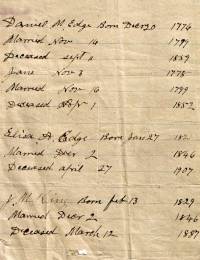 Daniel M Edge Born Decr 20 1774
Married Nov 14 1799
Deceased Sept 1839
Jane Nov 3 1778
Married Nov 1799
Deceased Apr 1 1852
Eliza A. Edge Born Jan 27 182
Married Decr 2 1846
Deceased april 27 1907
J. M. King Born feb 13 1829
Married Decr 2 1846
Deceased March 12 1887